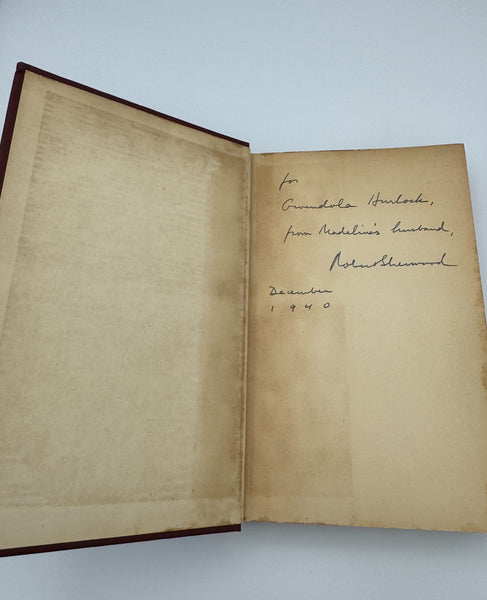 for
Gwendola Hurlock,
from Madeline's husband,
Robert Sherwood
December
1940